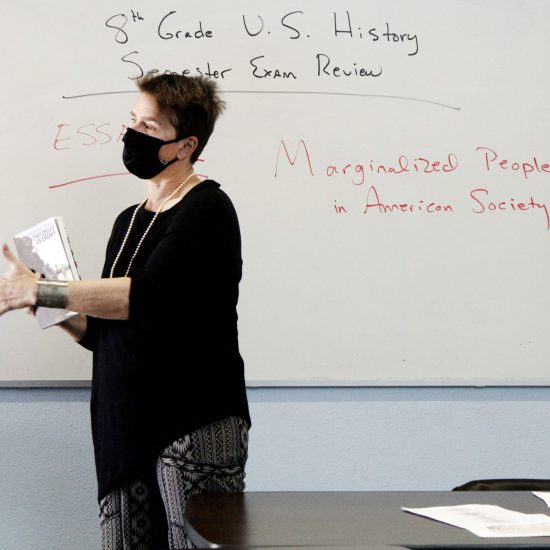 8th Grade U. S. History
Semester Exam Review
Marginalized People
in American Society